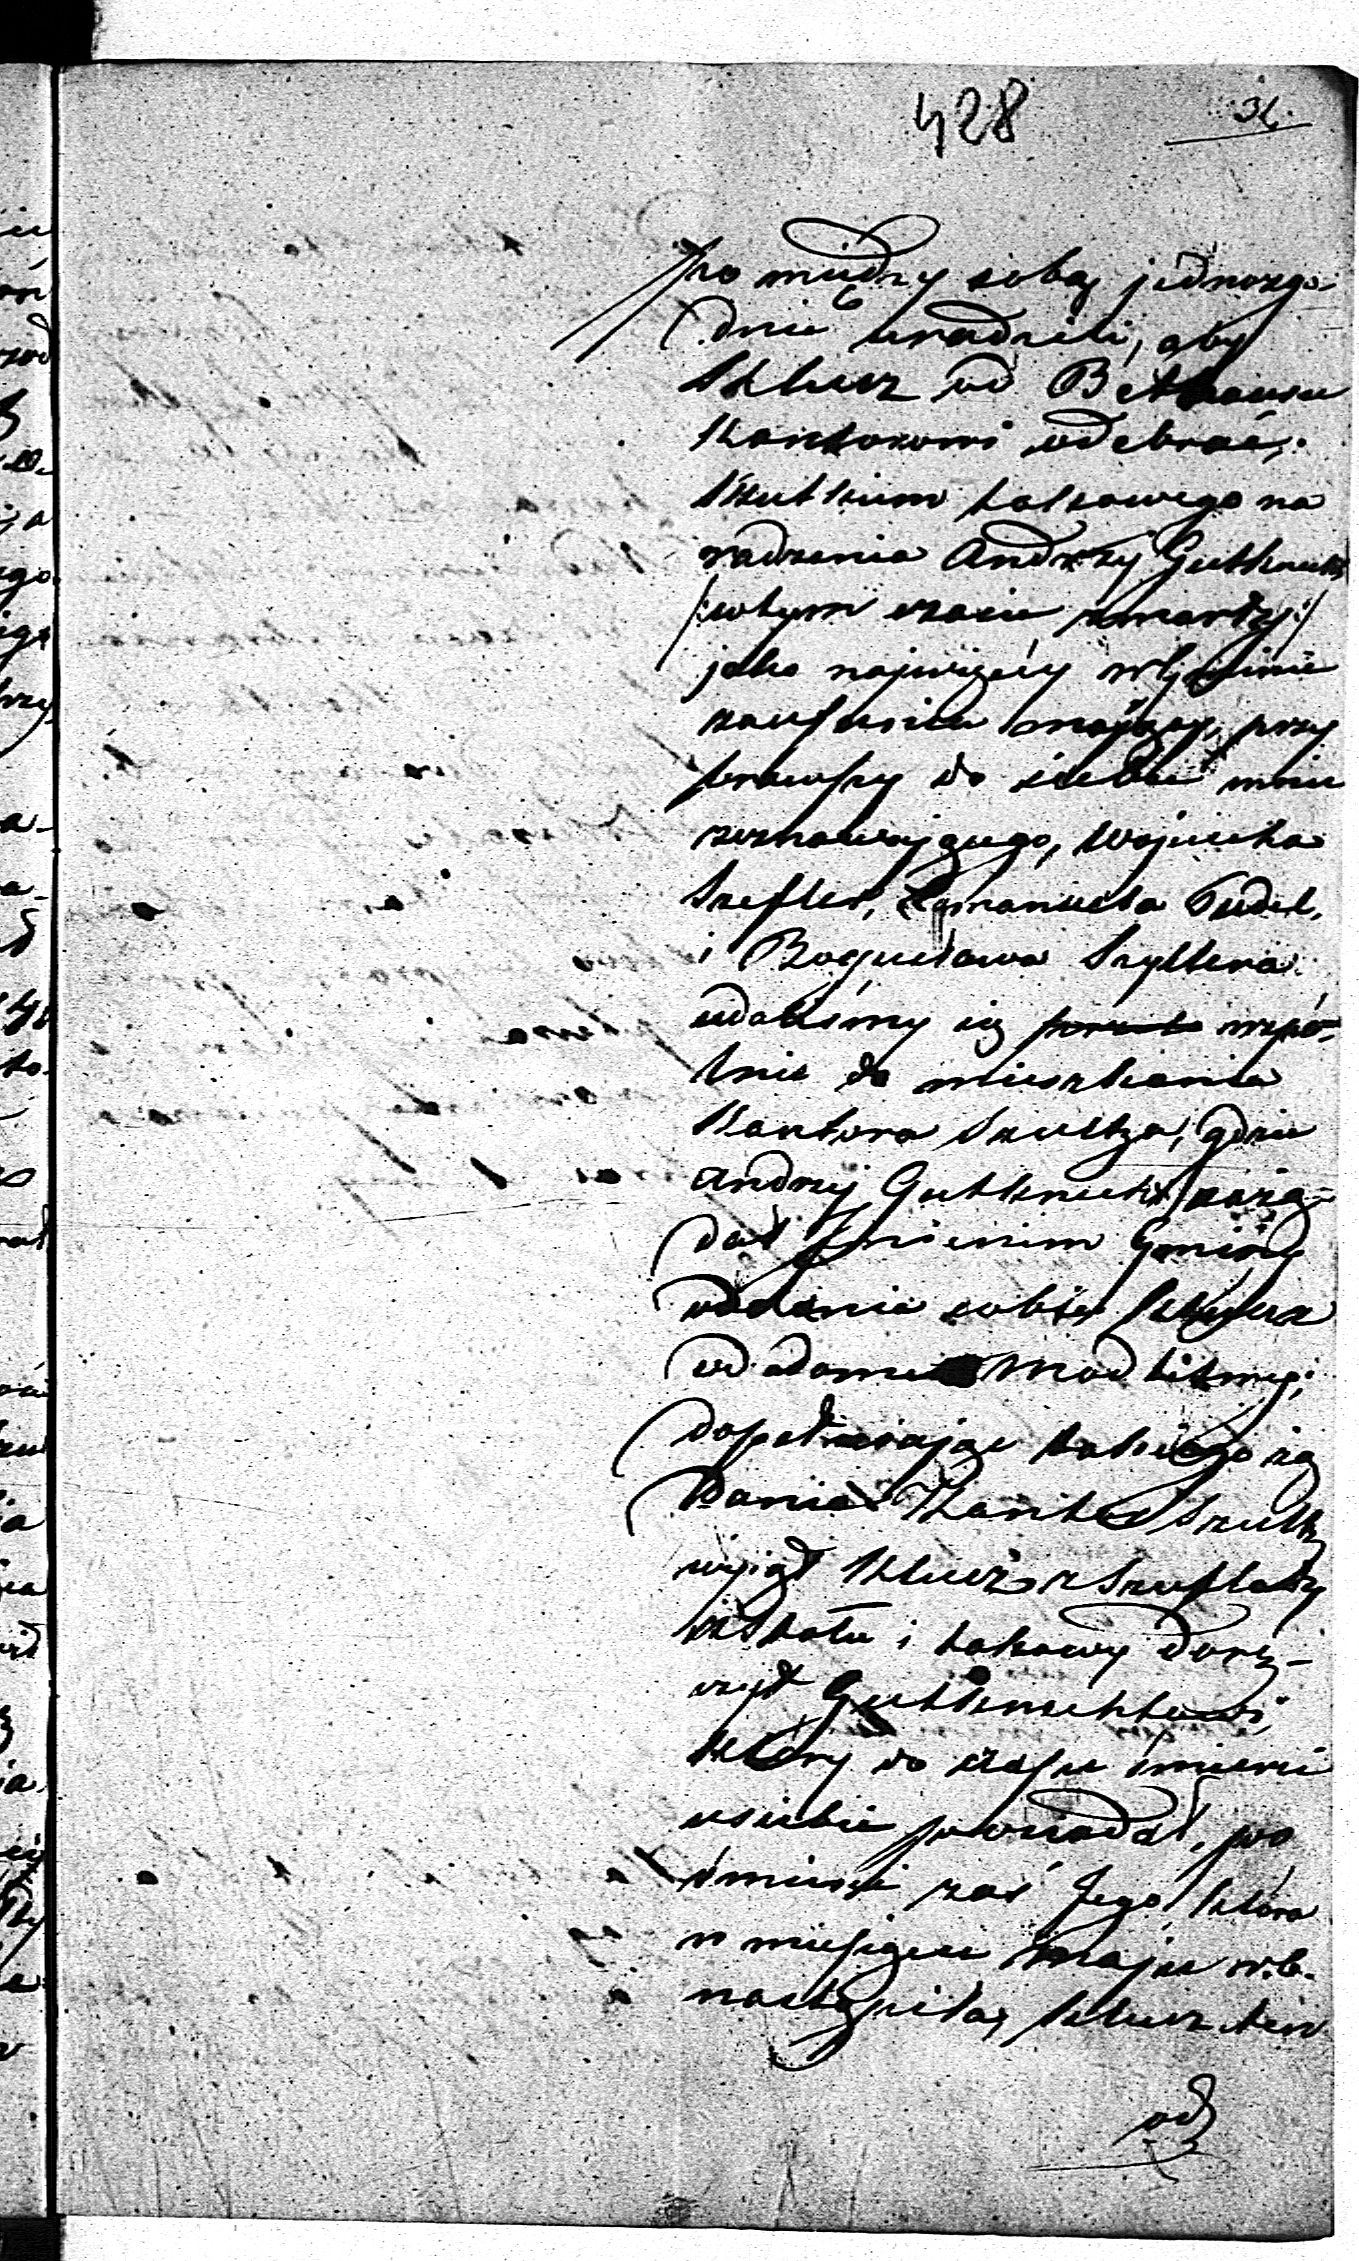 428
34.
to między sobą jednozgo-
dnie uradzili, aby
Klucz od Bethausu
Kantorowi odebrać,
Skutkiem takowego na
radzenia Andrzej Gutknecht
/:w tym czasie zmarły:/
jako najwięcéy w Gminie
zaufania mający, przy
brawszy do siebie mnie
zeznawającego, Woyciecha
Szefler, Emanuela Tudel,
i Bogusława Szyllera
udaliśmy się wspó-
lnie do mieszkania
Kantora Szultza, gdzie
Andrzej Gutknecht zażą-
dał Imieniem Gminy
oddania sobie Klucza
od domu Modlitwy;
dopełniając takiego żą
dania Kantor Szultz
wyjął Klucz z Szuflady
od stołu i takowy dorę-
czył Gutknechtowi,
który do czasu śmierci
u siebie posiadał, po
śmierci zaś Jego, która
w miesiącu Maju r. b.
nastąpiła, klucz ten
od